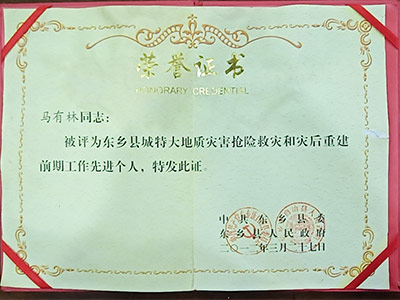 荣誉证书
HONORARY CREDENTIAL
马有林同志：
被评为东乡县城特大地质灾害抢险救灾和灾后重建
前期工作先进个人，特发此证。
中共东乡县委
东乡县人民政府
二〇一二年三月二十七日